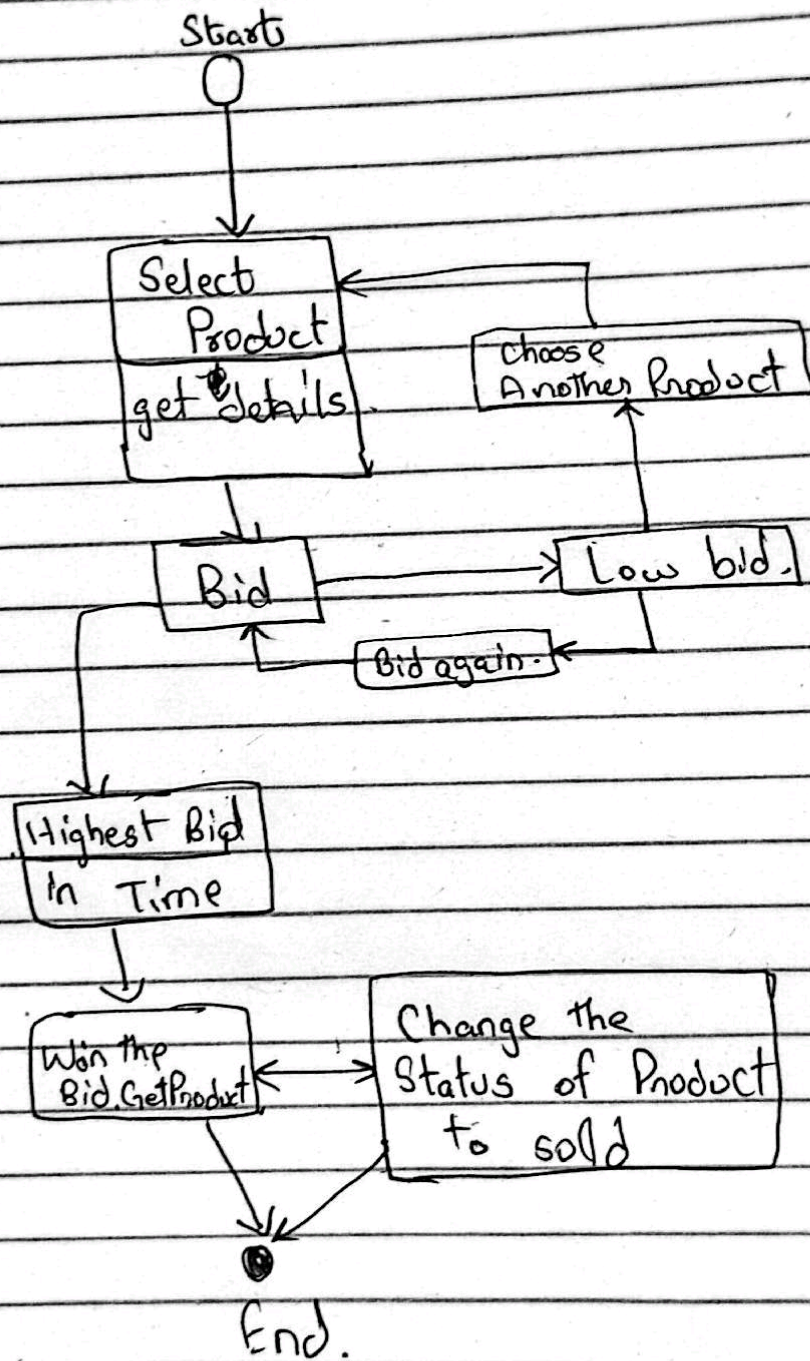 Start
Select
Product
get details
Choose
Another Product
Bid
Low bid.
Bid again.
Highest Bid
in Time
Won the
Bid.GetProduct
Change the
Status of Product
to sold
End.